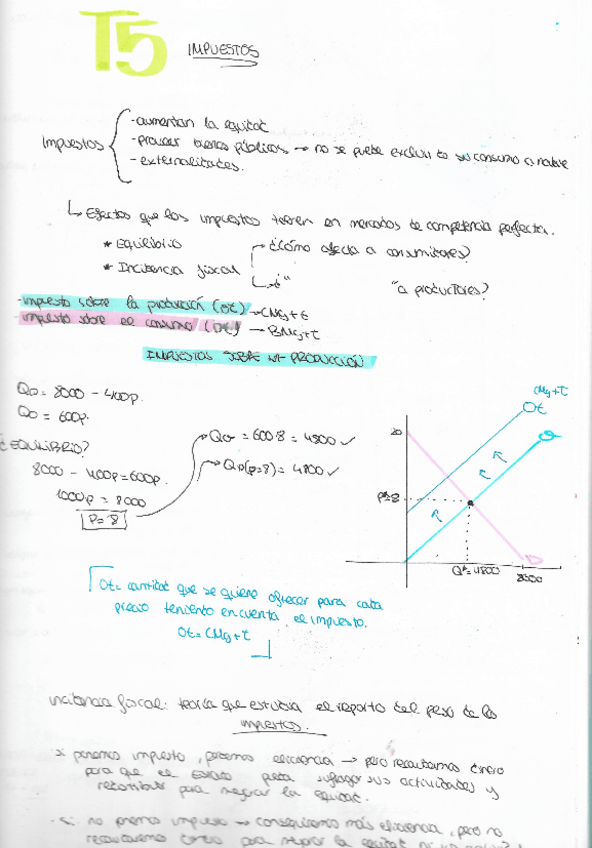 T5 IMPUESTOS
Impuestos
- aumentan la equidad
- proveer bienes públicos → no se puede excluir de su consumo a nadie
- externalidades.
↳ Efectos que los impuestos tienen en mercados de competencia perfecta.
* Equilibrio → ¿Cómo afecta a consumidores?
* Incidencia fiscal ↳ ¿" "a productores?
- impuesto sobre la producción (Ot) → CMg+t
- impuesto sobre el consumo (Dt) → BMg+t
IMPUESTOS SOBRE LA PRODUCCIÓN
QD = 8000 - 400p.
QO = 600p.
¿EQUILIBRIO?
8000 - 400p = 600p.
1000p = 8000
P = 8
QO = 600·8 = 4800 ✓
QD(p=8) = 4800 ✓
CMg+T
Ot
O
20
P*=8
Q*=4800
8000
D
Ot = cantidad que se quiere ofrecer para cada
precio teniendo en cuenta el impuesto.
Ot = CMg+T
incidencia fiscal: teoría que estudia el reparto del peso de los
impuestos.
si ponemos impuesto, perdemos eficiencia → pero recaudamos dinero
para que el Estado pueda sufragar sus actividades y
redistribuir para mejorar la equidad.
- Si no ponemos impuesto → conseguimos más eficiencia, pero no
recaudaremos dinero para mejorar la equidad